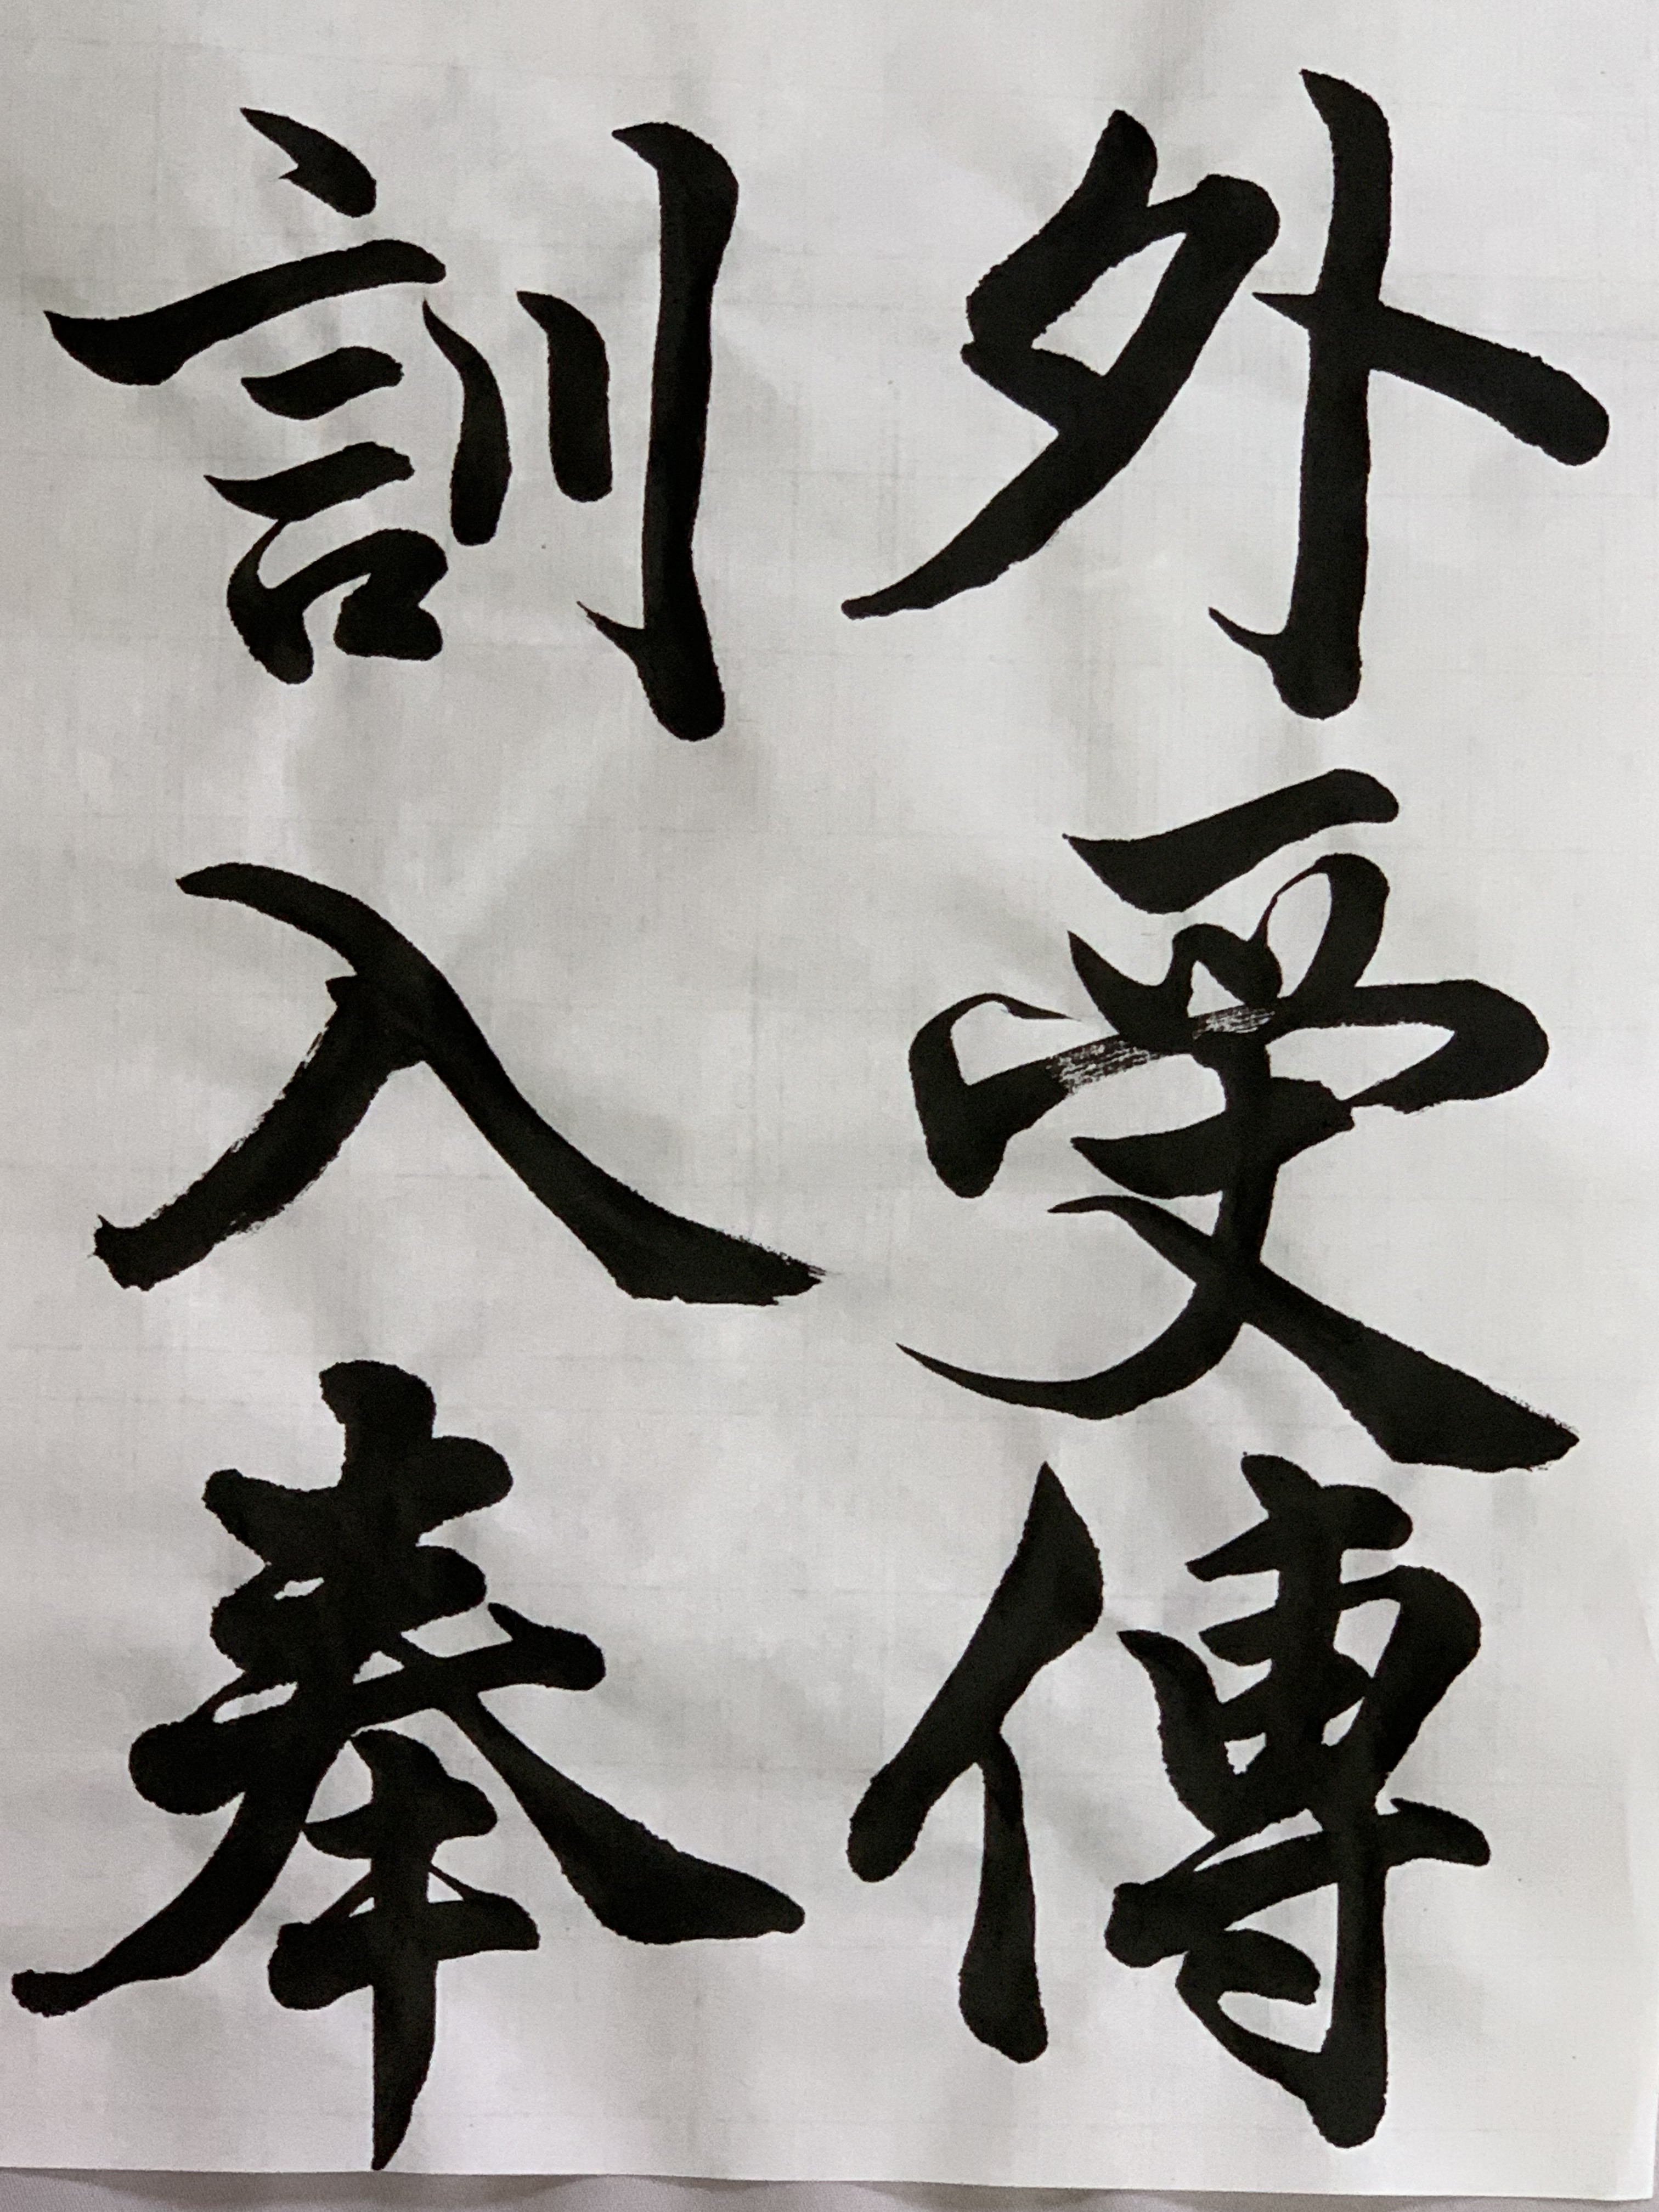 外受傅
訓入奉